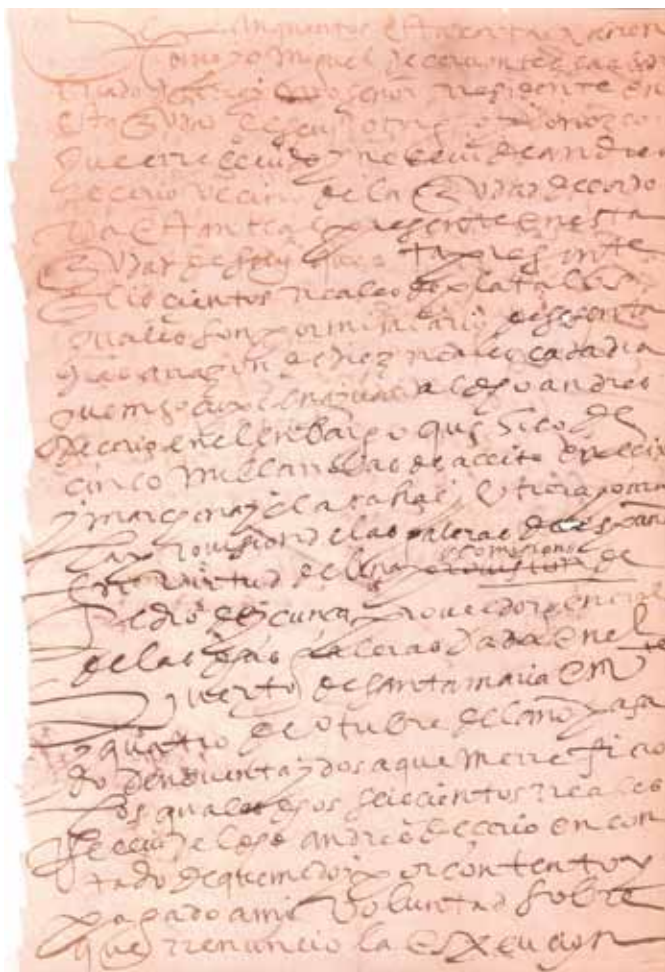 Sepan quantos esta carta vieren
como yo miguel de cerbantes saabedra
criado del rey nro señor rresidente en
esta ciudad de sevilla otorgo e conozco
que he rrecevido y rrecevi de andres
de cerio vecino de la ciudad de cordo
va estante al presente en esta
ciudad de sevª questa presente
seiscientos rreales de plata los
quales son por mi salario de sesenta
dias a rrazon de diez rreales cada dia
que me ocupe en ayudar al dho andres
de cerio en el enbargo que hizo de
cinco mill arrobas de aceite en ecixa
y marchena y la rañal y utrera para
la provision de las galeras de españa
en virtud de una provision comision de
pedro de ysunca proveedor general
de las dhas galeras dada en el
puerto de santa maria en veinte
y quatro de otubre del año pasa
do de nouenta y dos a que me rrefiero
los quales dhos seiscientos rreales
rrecevi del dho andres de cerio en con
tado de que me doy por contento y
pagado a mi voluntad sobre
que rrenuncio la esxecucion